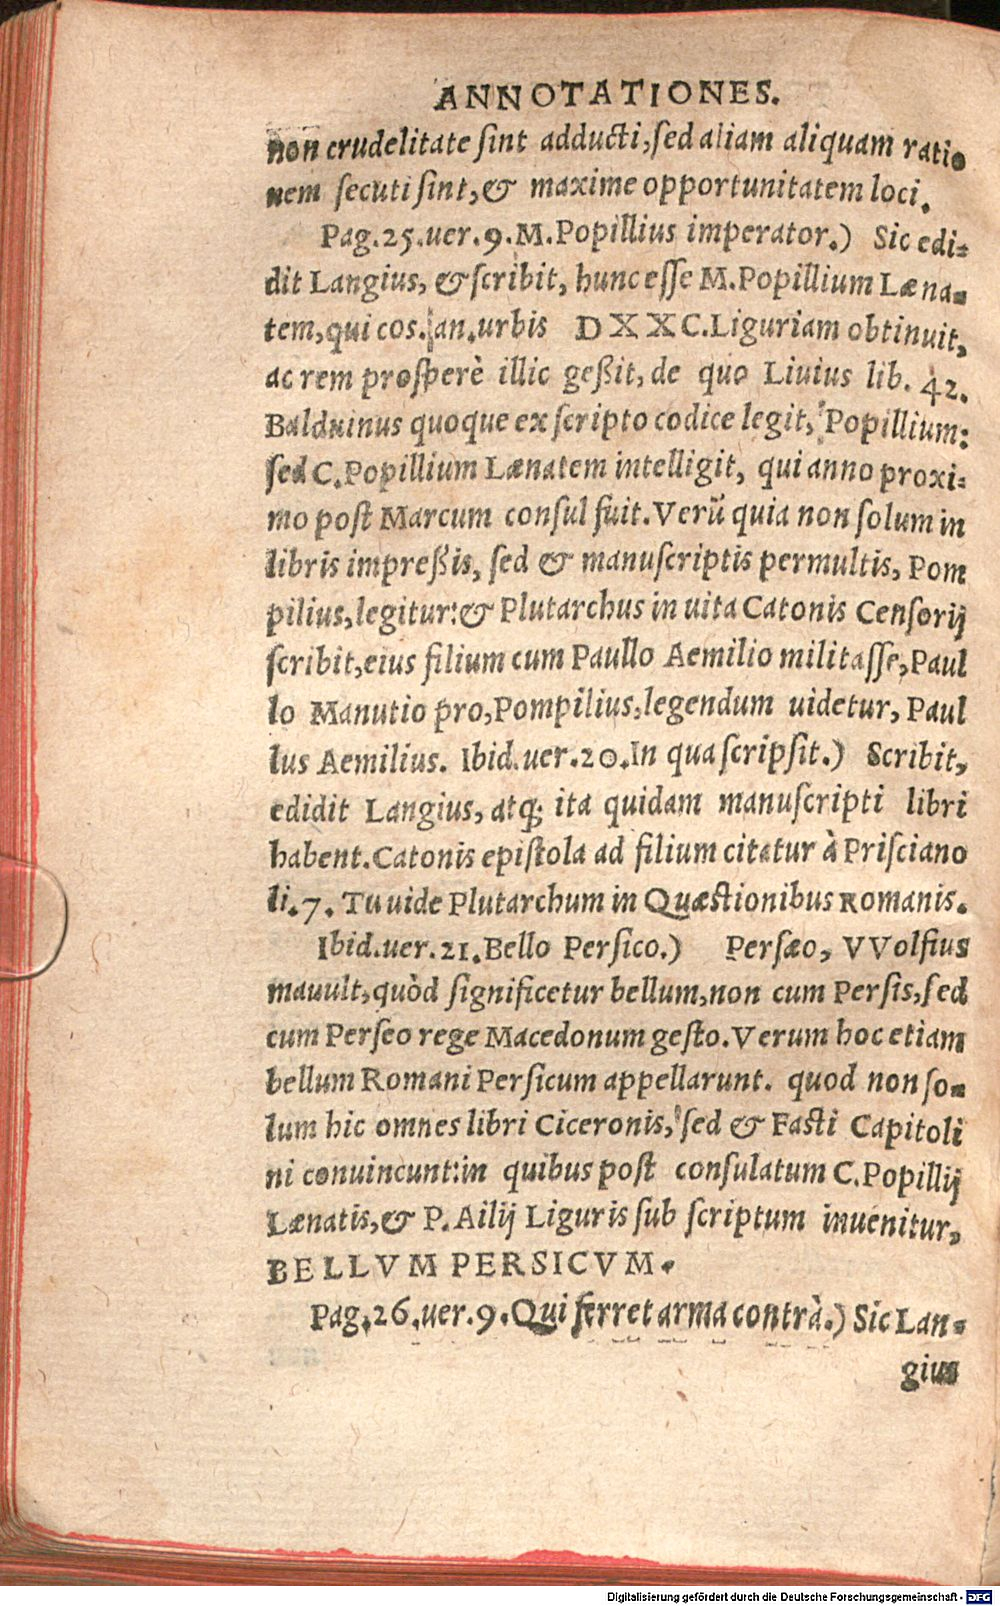 ANNOTATIONES.
non crudelitate ſint adducti, ſed aliam aliquam ratio
nem ſecuti ſint, & maxime opportunitatem loci.
Pag. 25. uer. 9. M. Popillius imperator.) Sic edi-
dit Langius, & ſcribit, hunc eſſe M. Popillium Læna-
tem, qui cos. an. urbis DXXC. Liguriam obtinuit,
ac rem proſperè illic geßit, de quo Liuius lib. 42.
Balduinus quoque ex ſcripto codice legit, Popillium:
ſed C. Popillium Lænatem intelligit, qui anno proxi-
mo poſt Marcum conſul fuit. Verũ quia non ſolum in
libris impreßis, ſed & manuſcriptis permultis, Pom
pilius, legitur: & Plutarchus in uita Catonis Cenſorij
ſcribit, eius filium cum Paullo Aemilio militaſſe, Paul
lo Manutio pro, Pompilius, legendum uidetur, Paul
lus Aemilius. Ibid. uer. 20. In qua ſcripſit.) Scribit,
edidit Langius, atq; ita quidam manuſcripti libri
habent. Catonis epiſtola ad filium citatur à Priſciano
li. 7. Tu uide Plutarchum in Quæſtionibus Romanis.
Ibid. uer. 21. Bello Perſico.) Perſæo, VVolfius
mauult, quòd ſignificetur bellum, non cum Perſis, ſed
cum Perſeo rege Macedonum geſto. Verum hoc etiam
bellum Romani Perſicum appellarunt. quod non ſo-
lum hic omnes libri Ciceronis, ſed & Faſti Capitoli
ni conuincunt: in quibus poſt conſulatum C. Popillij
Lænatis, & P. Ailij Liguris ſub ſcriptum inuenitur,
BELLVM PERSICVM.
Pag. 26. uer. 9. Qui ferret arma contrà.) Sic Lan-
gius
Digitalisierung gefördert durch die Deutsche Forschungsgemeinschaft - DFG